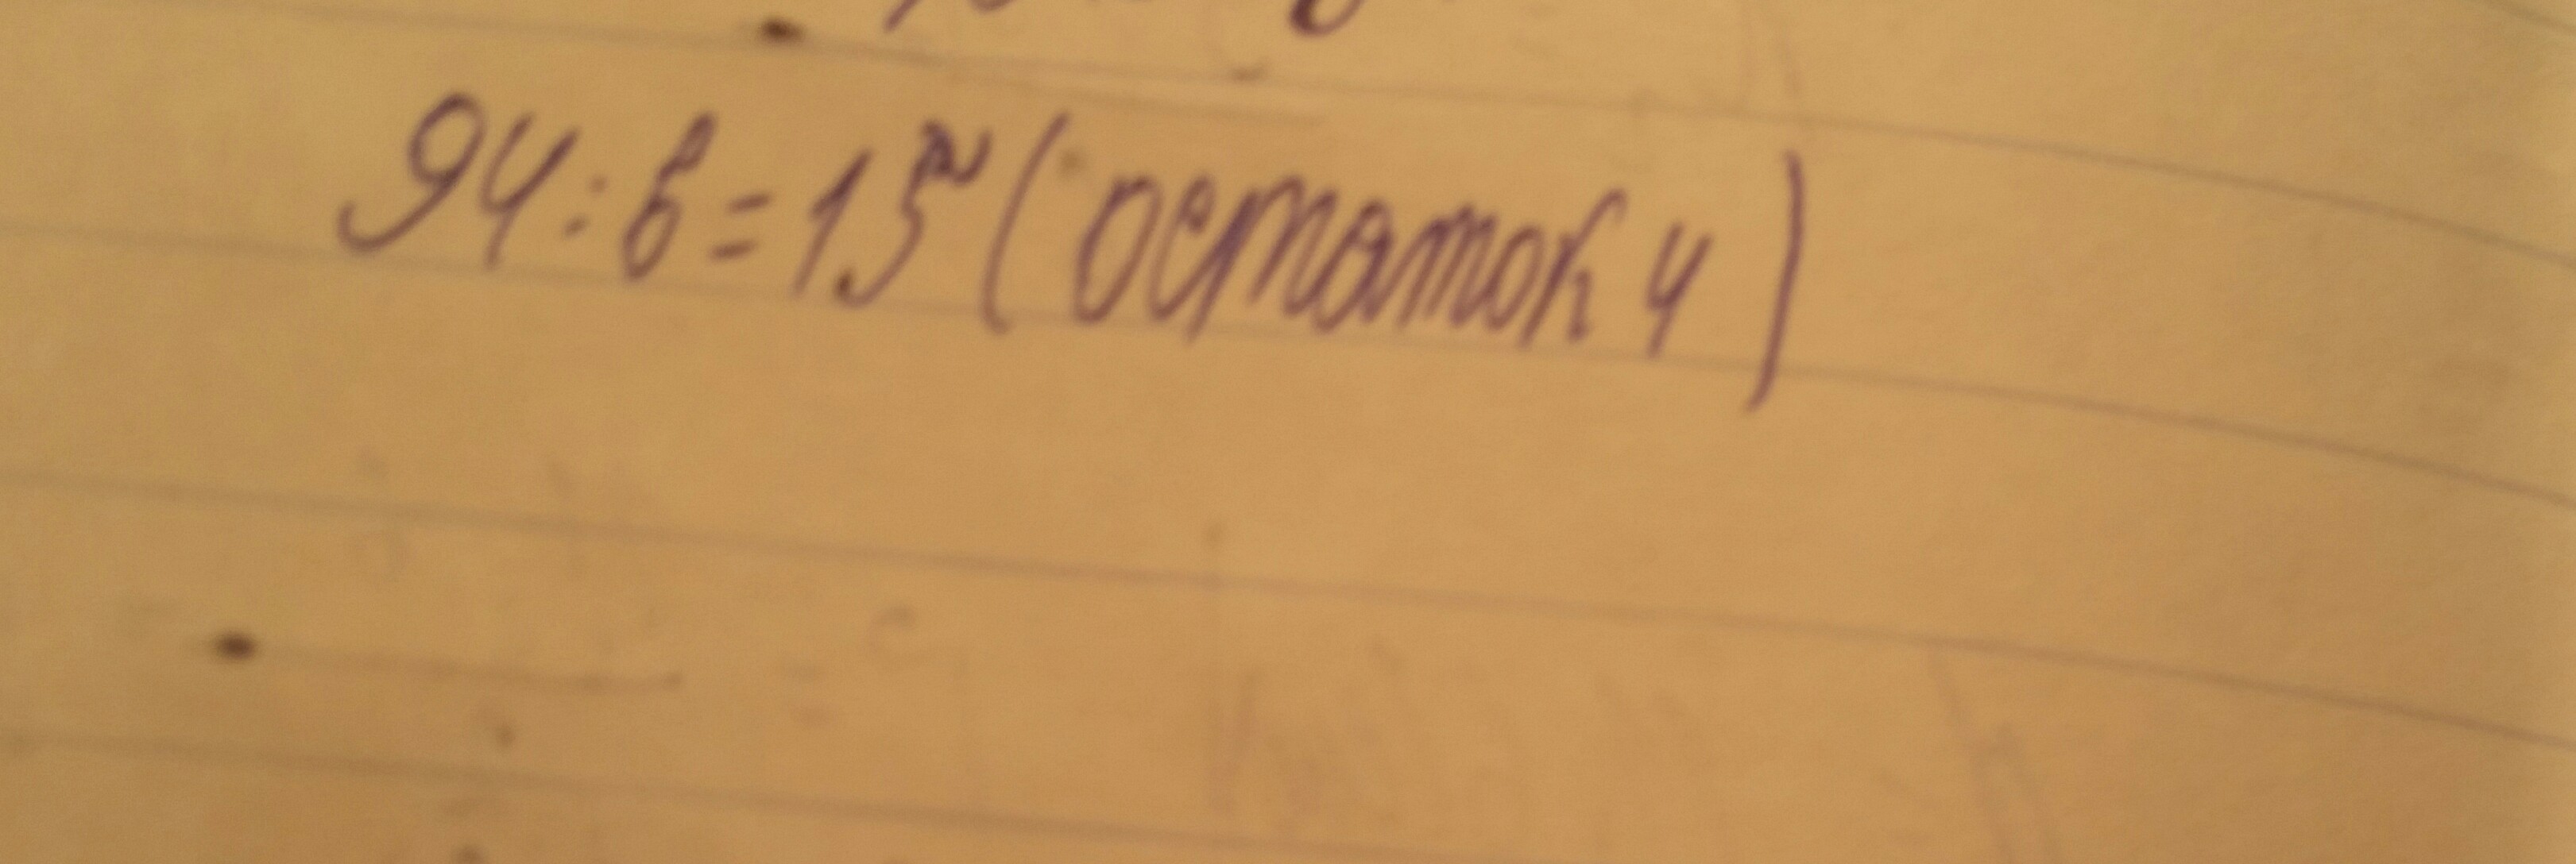 94:6=15(остаток 4)